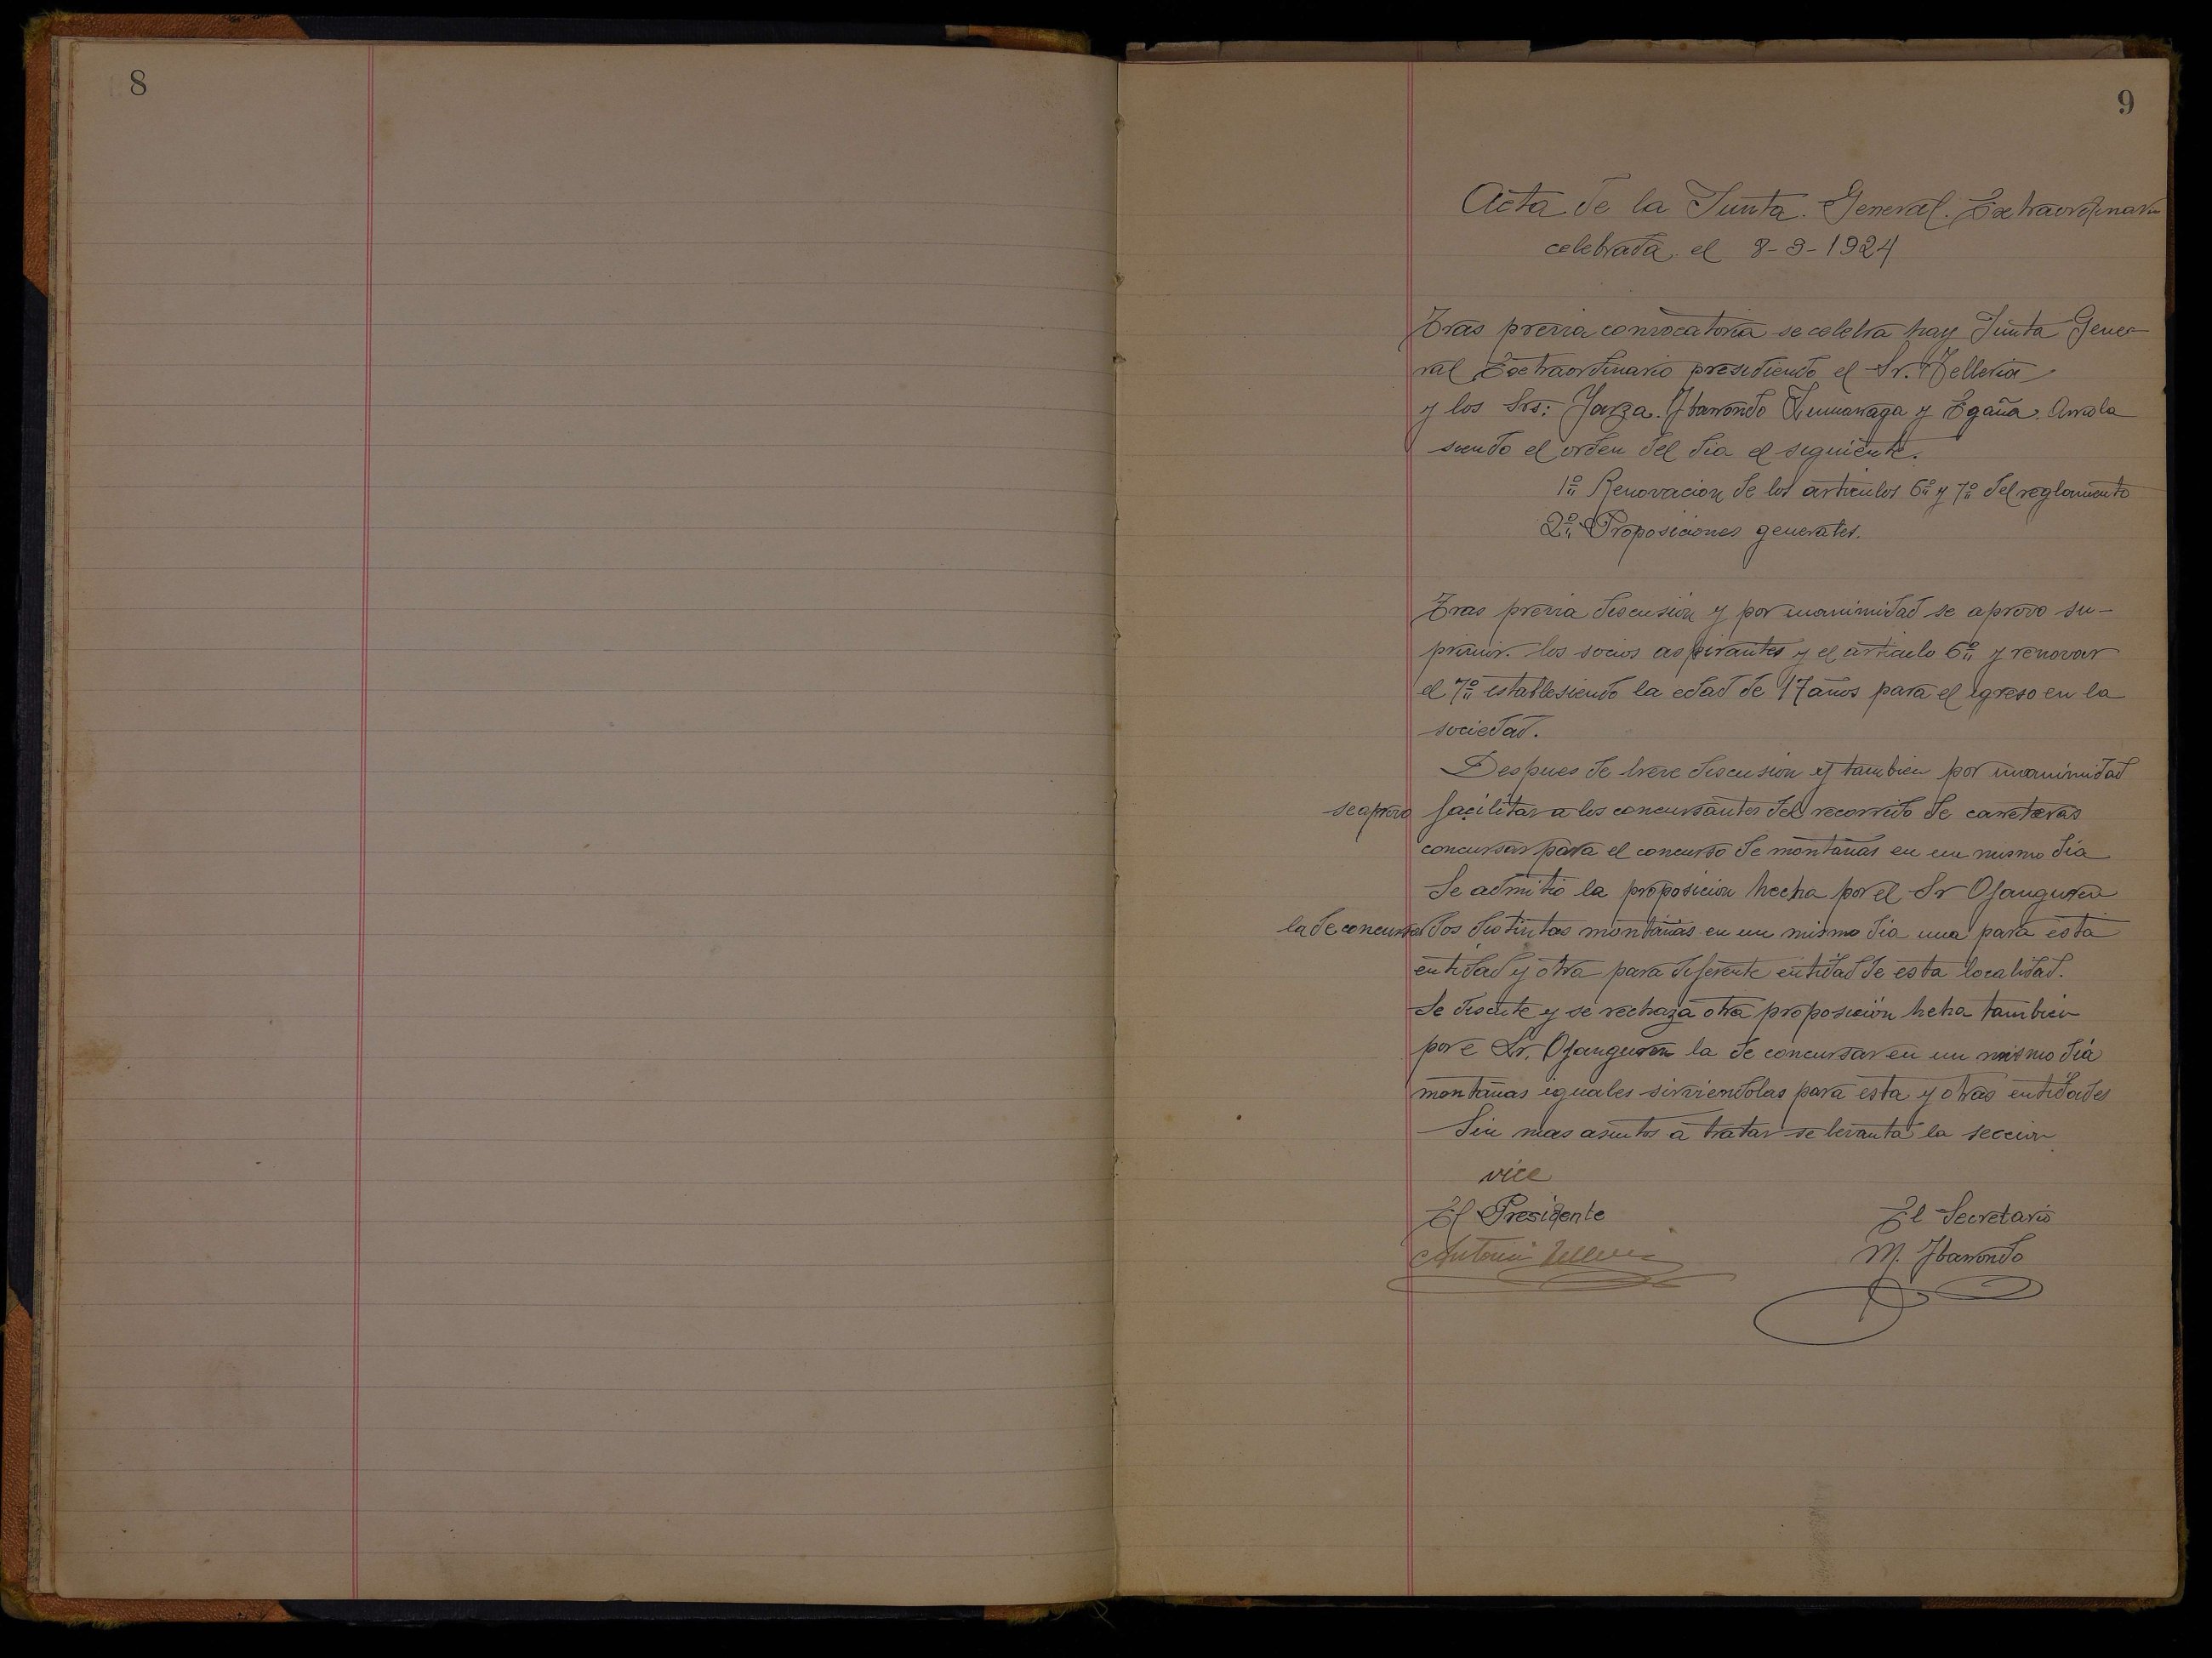 8
9
Acta de la Junta General. Extraordinaria
celebrada el 8-9-1924
Tras previa convocatoria se celebra hay Junta Gene-
ral Extraordinario presidiendo el Sr. Telleria
y los Srs: Yarza. Ybarrondo Zumarraga y Egaña. Arrola
siendo el orden del dia el seguiente.
1º Renovacion de los articulos 6º y 7º del reglamento
2º Proposiciones generales.
Tras previa discusion y por unanimidad se aprovo su-
primir. los socios aspirantes y el articulo 6º y renovar
el 7º establesiendo la edad de 17 años para el igreso en la
sociedad.
Despues de breve discusion y tambien por unanimidad
se aprovo facilitar a los concursantes del recorrido de carreteras
concursar para el concurso de montañas en un mismo dia
Se admitio la proposicion hecha por el Sr Ojanguren
la de concursar dos distintas montañas en un mismo dia una para esta
entidad y otra para diferente entidad de esta localidad.
Se discute y se rechaza otra proposición hecha tambien
por e Sr. Ojanguren la de concursar en un mismo dia
montañas iguales sirviendolas para esta y otras entidades
Sin mas asuntos a tratar se levanta la seccion
vice
El Presidente El Secretario
Antonio Telleria M. Ybarrondo